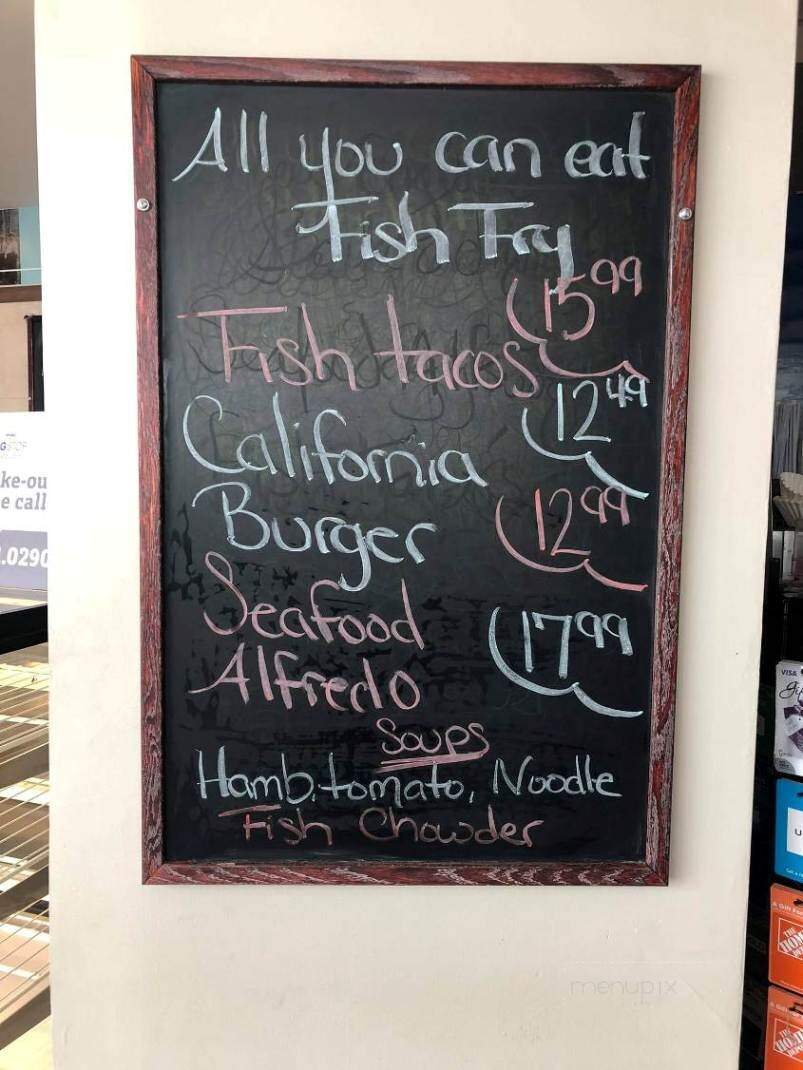 All you can eat
Fish Fry
15 99
Fish tacos
12 49
California
Burger
12 99
Seafood
Alfredo
17 99
Soups
Hamb, tomato, Noodle
Fish Chowder
ke-ou
e call
.0290
VISA
THE HOME
THE HOME
menupix